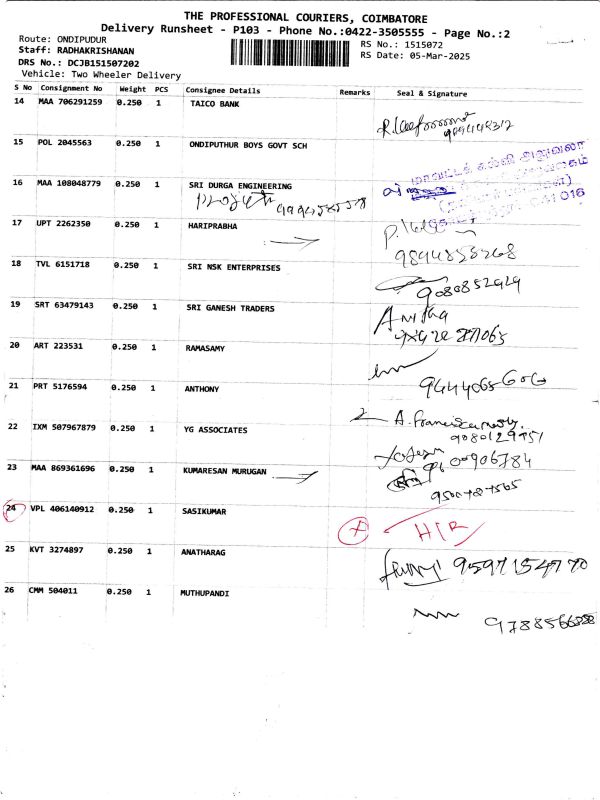 THE PROFESSIONAL COURIERS, COIMBATORE
Delivery Runsheet - P103 - Phone No.:0422-3505555 - Page No.:2
Route: ONDIPUDUR
RS No.: 1515072
Staff: RADHAKRISHANAN
RS Date: 05-Mar-2025
DRS No.: DCJB151507202
Vehicle: Two Wheeler Delivery
S No Consignment No Weight PCS Consignee Details Remarks Seal & Signature
14 MAA 706291259 0.250 1 TAICO BANK
15 POL 2045563 0.250 1 ONDIPUTHUR BOYS GOVT SCH
மாவட்டக் கல்வி அலுவலர்
16 MAA 108048779 0.250 1 SRI DURGA ENGINEERING
17 UPT 2262350 0.250 1 HARIPRABHA
9894858268
18 TVL 6151718 0.250 1 SRI NSK ENTERPRISES
9080852929
19 SRT 63479143 0.250 1 SRI GANESH TRADERS
Anitha
20 ART 223531 0.250 1 RAMASAMY
21 PRT 5176594 0.250 1 ANTHONY
22 IXM 507967879 0.250 1 YG ASSOCIATES
23 MAA 869361696 0.250 1 KUMARESAN MURUGAN
24 VPL 406140912 0.250 1 SASIKUMAR
25 KVT 3274897 0.250 1 ANATHARAG
9597154770
26 CMM 504011 0.250 1 MUTHUPANDI